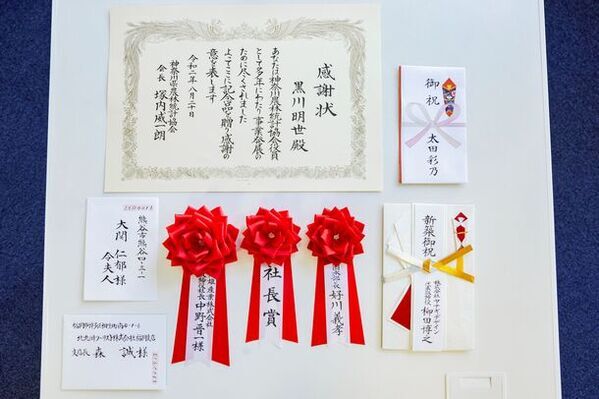 感謝状
黒川明世殿
あなたは神奈川農林統計協会役員
として多年にわたり事業発展の
ために尽くされました
よってここに記念品を贈り感謝の
意を表します
令和二年八月二十日
神奈川県農林統計協会
会長 塚内威一郎
御祝
太田彩乃
熊谷市熊谷四・三・一
大関 仁郁様
令夫人
雄産業株式会社
中野晋一様
社長賞
好川義孝
新築御祝
柳田博之
支店長 森 誠様